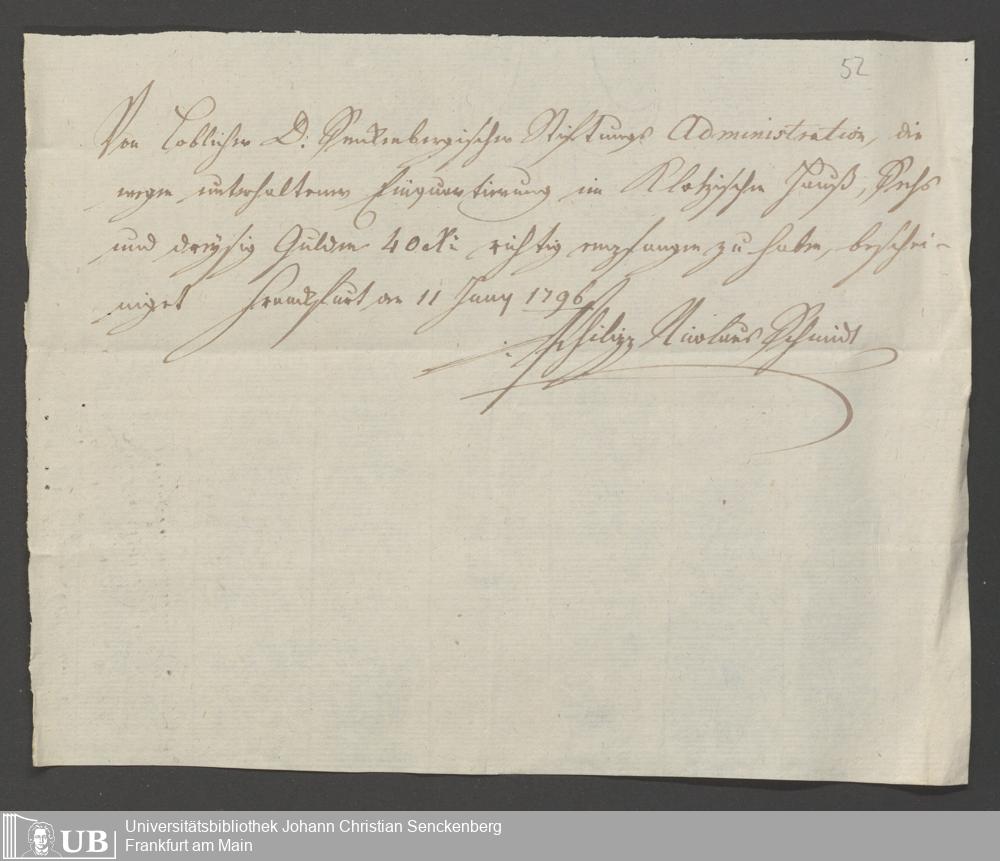 52
Von Loblicher D: Senckenbergischer Stiftungs Administration, die
wegen unterhaltener Einquartierung im Klotzischen Hauß, Sechs
und dreysig Gulden 40 Xr richtig empfangen zu haben, beschei-
niget Franckfurt den 11 Juny 1796
Philipp Nicolaus Schmidt
UB
Universitätsbibliothek Johann Christian Senckenberg
Frankfurt am Main